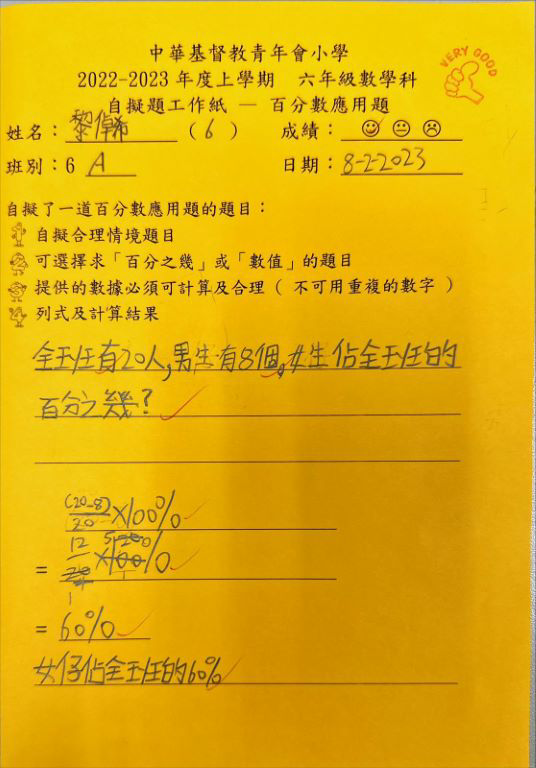 中華基督教青年會小學
VERY GOOD
2022-2023 年度上學期 六年級數學科
自擬題工作紙 — 百分數應用題
姓名：黎倬希 ( 6 ) 成績：
班別：6 A 日期：8-2-2023
自擬了一道百分數應用題的題目：
自擬合理情境題目
可選擇求「百分之幾」或「數值」的題目
提供的數據必須可計算及合理 ( 不可用重複的數字 )
列式及計算結果
全班有20人,男生有8個,女生佔全班的
百分之幾?
(20-8)/20 ×100%
= 12/20 ×100%
= 60%
女仔佔全班的60%